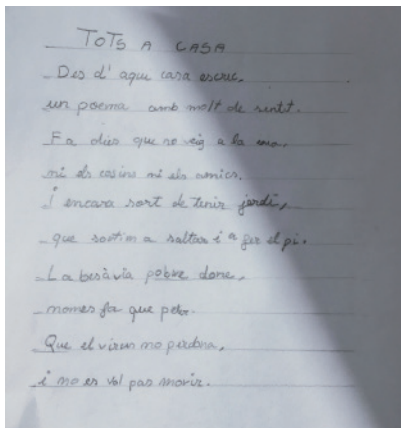 TOTS A CASA
Des d'aqui casa escric,
un poema amb molt de sentit.
Fa dies que no veig a la
ni els cosins ni els amics.
I encara sort de tenir jardí,
que sortim a saltar i a fer el pi.
La besàvia pobre dona,
nomes fa que
Que el virus no perdona,
i no es vol pas morir.